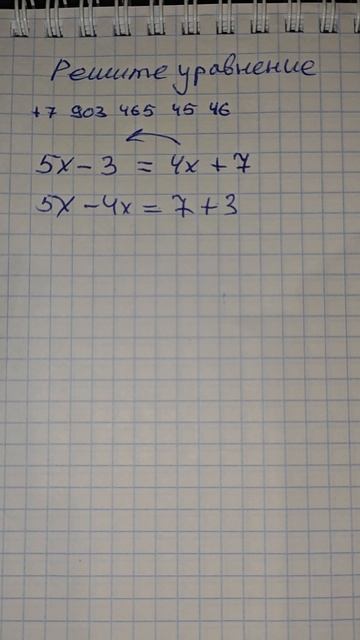 Решите уравнение
+7 903 465 45 46
5x - 3 = 4x + 7
5x - 4x = 7 + 3